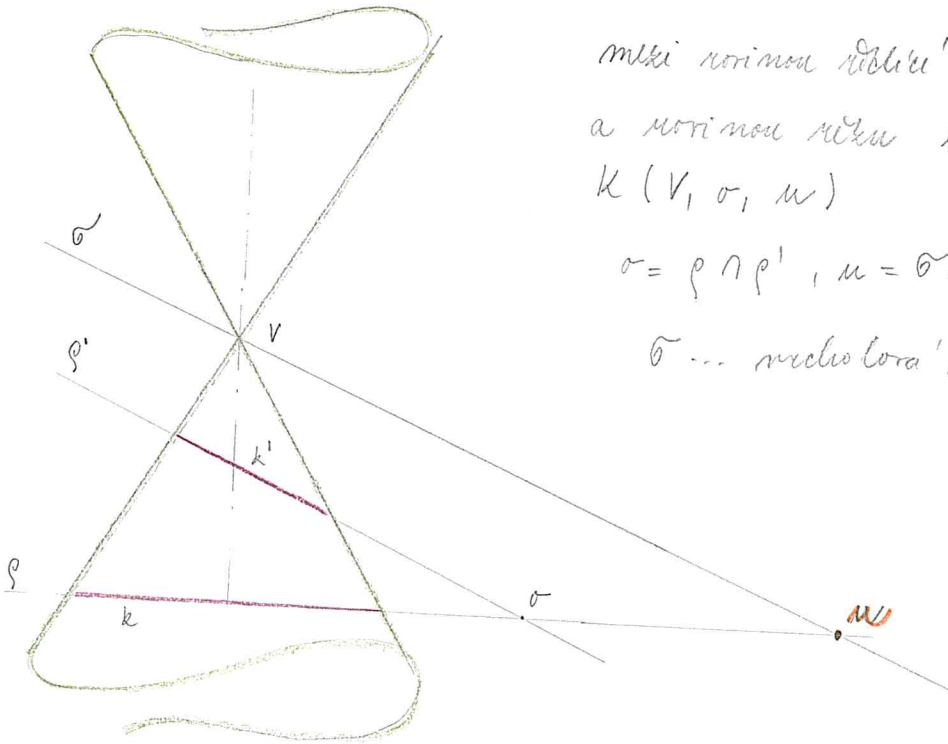 mezi rovinou řídící
a rovinou řezu
K (V, o, u)
o = ρ ∩ ρ' , u = σ
σ ... vrcholová
σ
V
ρ'
k'
ρ
k
o
u